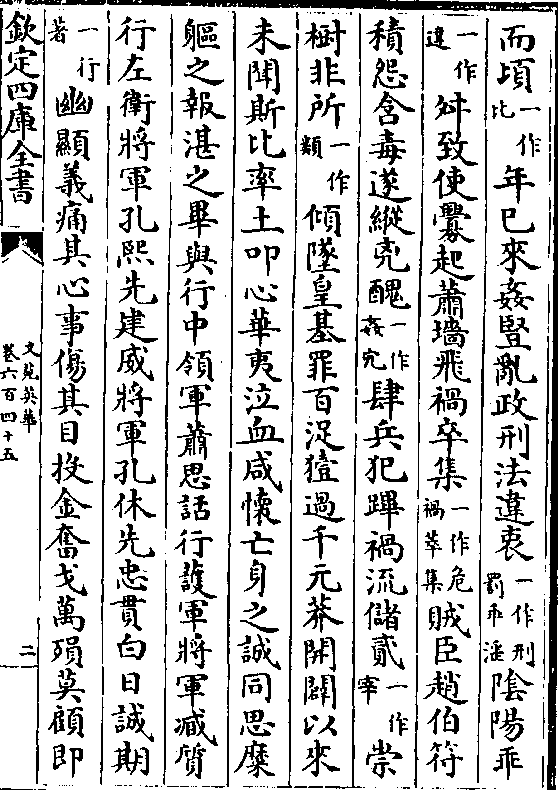 而頃一作比年已來姦豎亂政刑法違衷一作刑罰乖滛隂陽乖
一作違舛致使釁起蕭墻飛禍卒集一作危禍萃集賊臣趙伯符
積怨含毒遂縱兇醜一作姦宄肆兵犯蹕禍流儲貳一作宰崇
樹非所一作類傾墜皇基罪百浞獹過千元莽開闢以來
未聞斯比率土叩心華夷泣血咸懷亡身之誠同思糜
軀之報湛之畢與行中領軍蕭思話行護軍將軍臧質
行左衛將軍孔熙先建威將軍孔休先忠貫白日誠期
一行著幽顯義痛其心事傷其目投金奮戈萬殞莫顧即
欽定四庫全書
文苑英華
卷六百四十五
二